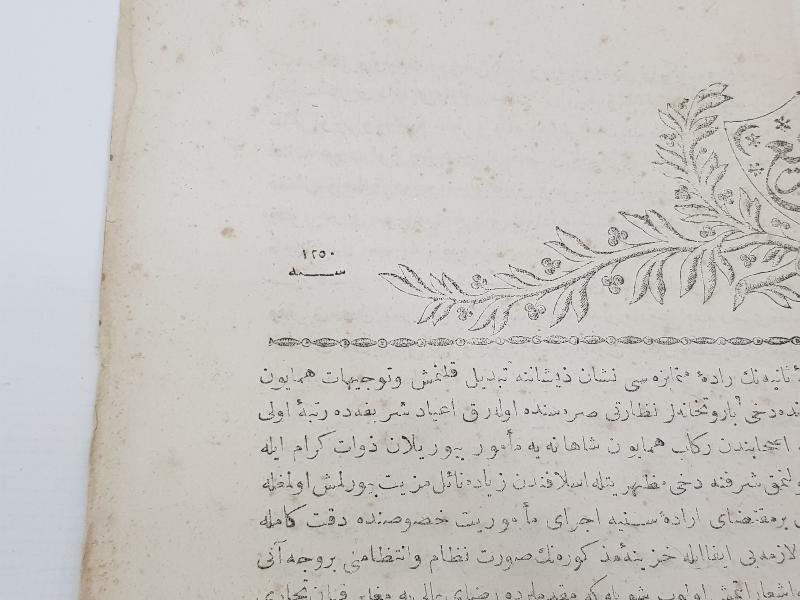 ١٢٥٠
سنه
ثانيه‌نك راده متمايزه سى نشان ذيشاننه تبديل قلنمش وتوجيهات همايون
دخى باروتخانه‌لر نظارتى صره سنده اوله‌رق اعياد شريفه‌ده رتبهٔ اولى
اصحابندن ركاب همايون شاهانه يه مأمور بيوريلان ذوات كرام ايله
شرفنه دخى مظهريتله اسلافندن زياده نائل مزيت بيورلمش اولمغله
برمقتضاى ارادهٔ سنيه اجراى مأموريت خصوصنده دقت كامله
لازمه يى ايفا ايله خزينهٔ مذكوره‌نك صورت نظام وانتظامنى بروجه آتى